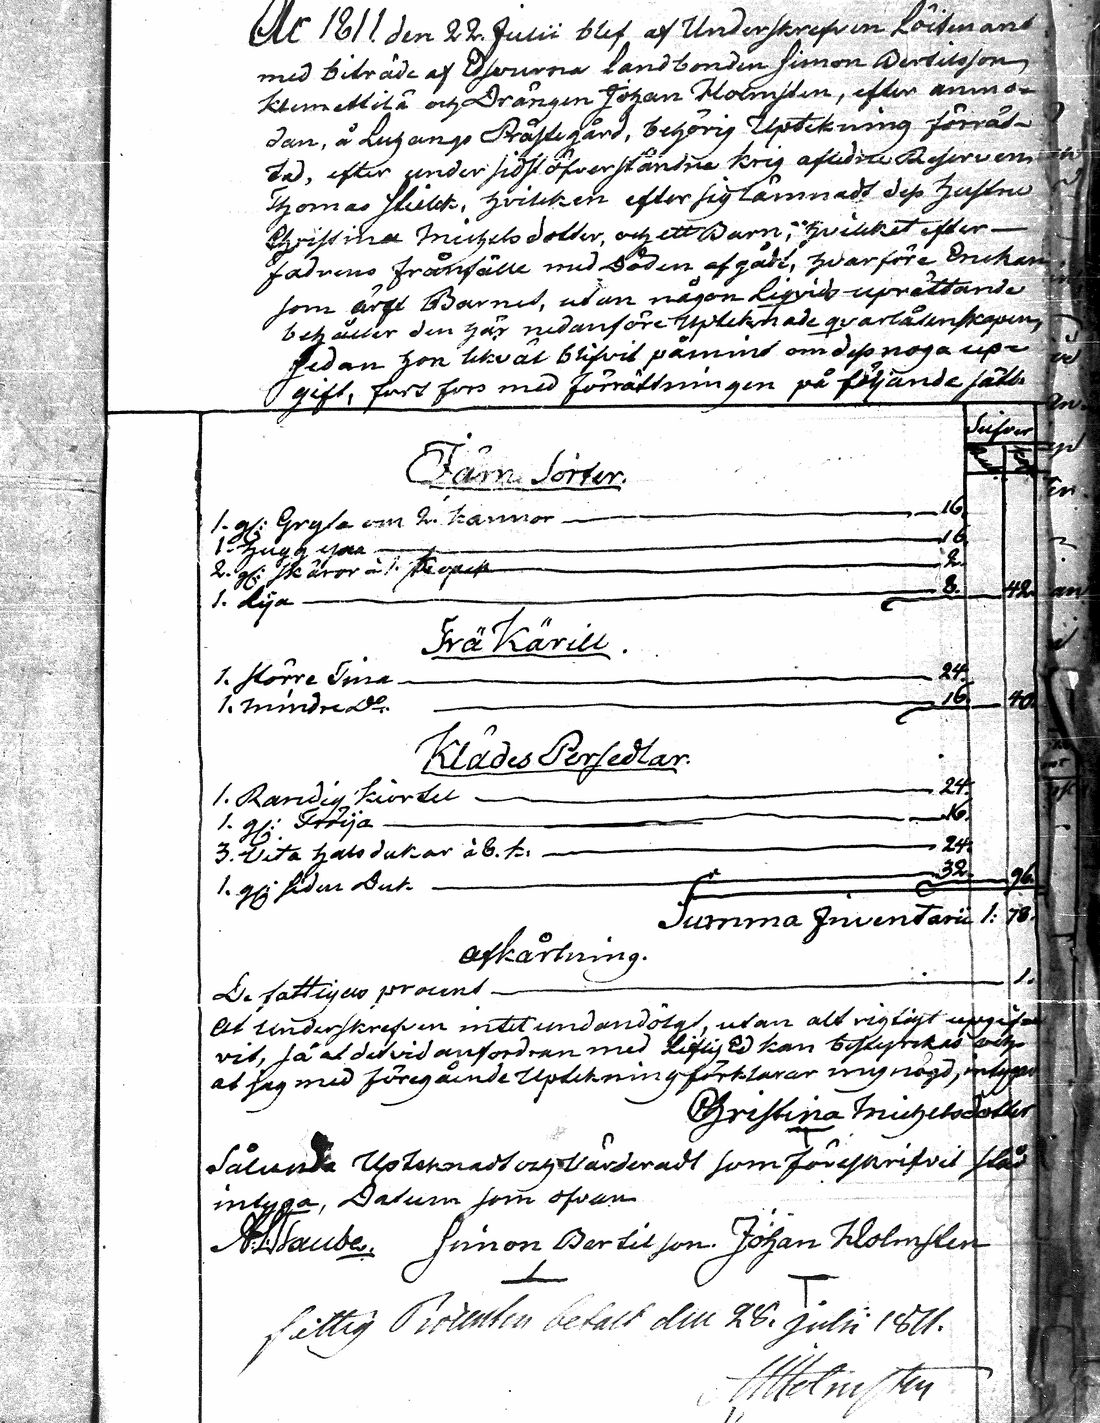 År 1811. den 22. Julii blef af Underskrefven Löitenant
med biträde af Edsvurna landbonden Simon Bertilsson
Klemettilä och Drängen Johan Holmsten, efter anmo-
dan, å Luhango Prästegård, behörig Uptekning förrät-
tad, efter under sidstöfverståndne krig aflidne Reserven
Thomas Stick, hvilcken efter sig lämnadt dess hustru
Christina Michelsdotter, och ett Barn, hvilcket efter
fadrens frånfälle med Döden afgådt, hvarföre Enckan
som ärft Barnet, utan någon Liqvids uprättande
behåller den här nedanföre Uptecknade qvarlåtenskapen,
sedan hon likväl blifvit påmind om dess noga up-
gift, fort fors med förrättningen på följande sätt.
Silfver
Järn Sorter.
1. gl: Gryta om 2. kannor 16.
1. hugg yxa 16.
2. gl: skäror à 1. 2.
1. Lija 8. 42.
Trä Kärill.
1. större Tina 24.
1. mindre Do. 16. 40.
Klädes Persedlar.
1. Randig kiortel 24.
1. gl: Tröija 16.
3. Vita halsdukar à 8. k. 24.
1. gl: siden Duk 32. 96.
Summa Inventarii 1: 78.
Afkårtning.
De fattigas procent 1.
At Underskrefven intet undandölgt, utan alt rigtigt upgifvit
vit, så at det vid anfordran med Liflig Ed kan bestyrckas och
at jag med föregående Uptekning förklarar mig nögd, intygar
Christina Michelsdotter
Sålunda Uptecknadt och Värderadt som föreskrifvit står
intyga, Datum som ofvan
Simon Bertilsson. Johan Holmsten
fattig Procenten betalt den 28. julii 1811.